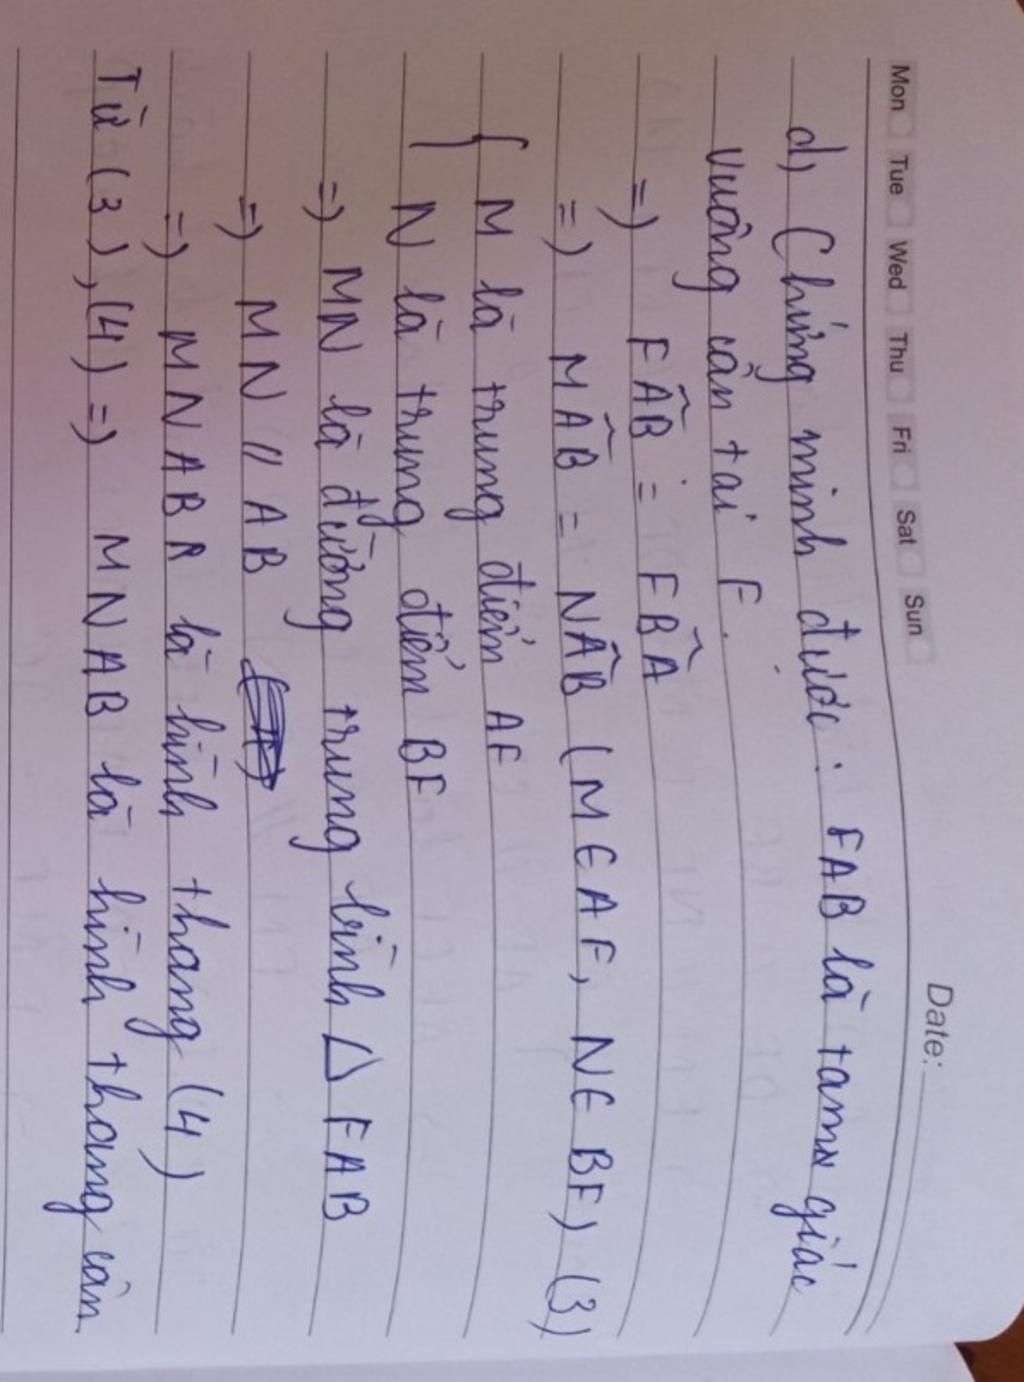 Date:
Mon Tue Wed Thu Fri Sat Sun
d) Chứng minh được: FAB là tam giác
vuông cân tại F.
=) FÂB = FB̂A
=) MÂB = NÂB (M ∈ AF, N ∈ BF) (3)
{ M là trung điểm AF
N là trung điểm BF
=) MN là đường trung bình △ FAB
=) MN // AB
=) MNAB là hình thang (4)
Từ (3), (4) =) MNAB là hình thang cân